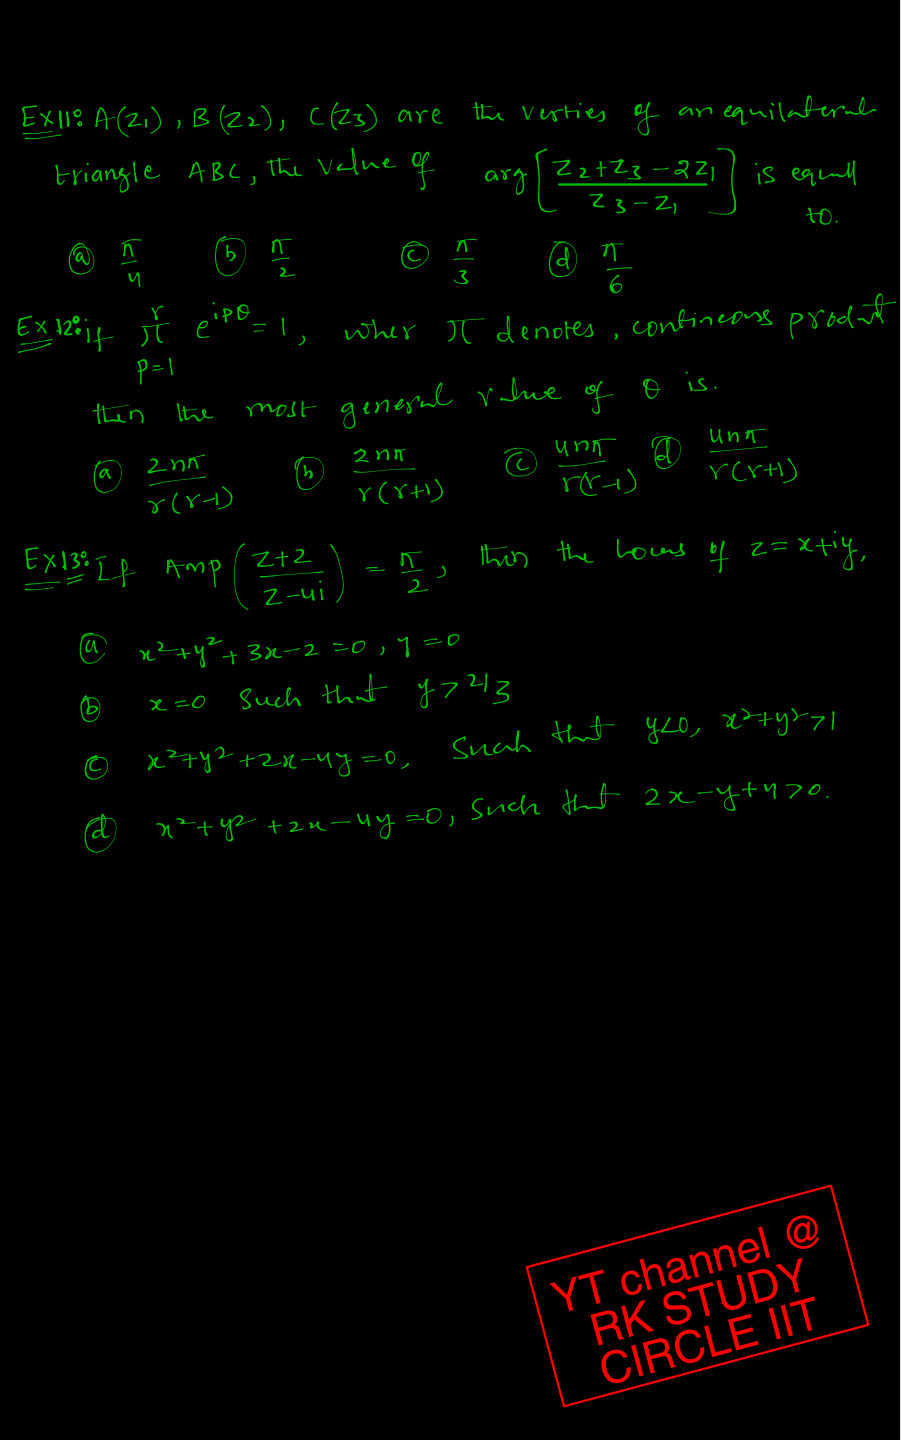 Ex11: A(Z1), B(Z2), C(Z3) are the verties of an equilateral
triangle ABC, the value of arg[(Z2+Z3-2Z1)/(Z3-Z1)] is equall to.
(a) π/4 (b) π/2 (c) π/3 (d) π/6
Ex12: if π_{p=1}^{r} e^{ipθ} = 1, wher π denotes, contineous product
then the most general value of θ is.
(a) 2nπ/r(r-1) (b) 2nπ/r(r+1) (c) 4nπ/r(r-1) (d) 4nπ/r(r+1)
Ex13: If Amp((Z+2)/(Z-4i)) = π/2, then the locus of z=x+iy,
(a) x²+y²+3x-2=0, y=0
(b) x=0 Such that y>2/3
(c) x²+y²+2x-4y=0, Such that y<0, x²+y²>1
(d) x²+y²+2x-4y=0, Such that 2x-y+4>0.
YT channel @
RK STUDY
CIRCLE IIT